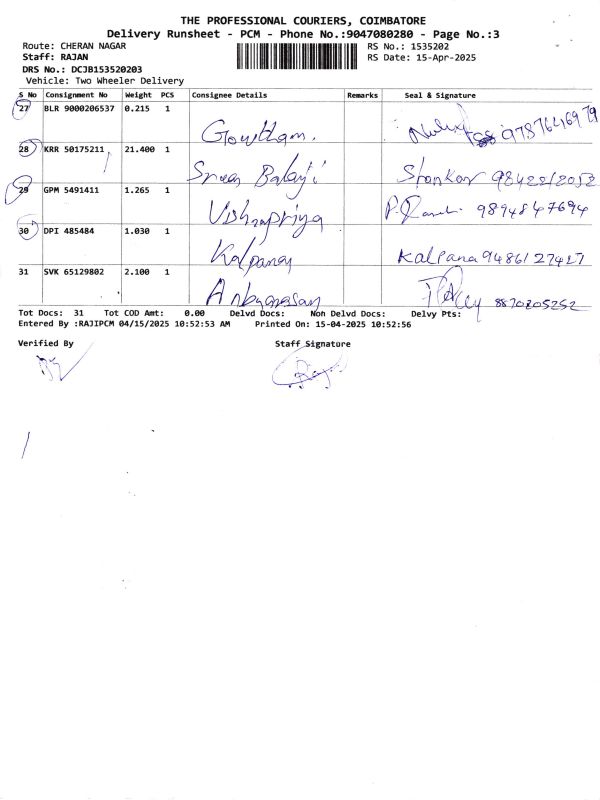 THE PROFESSIONAL COURIERS, COIMBATORE
Delivery Runsheet - PCM - Phone No.:9047080280 - Page No.:3
Route: CHERAN NAGAR RS No.: 1535202
Staff: RAJAN RS Date: 15-Apr-2025
DRS No.: DCJB153520203
Vehicle: Two Wheeler Delivery
S No Consignment No Weight PCS Consignee Details Remarks Seal & Signature
27 BLR 9000206537 0.215 1 Gowtham.
28 KRR 50175211 21.400 1 Sree Balaji Shankar
29 GPM 5491411 1.265 1 Vishnupriya 9894847694
30 DPI 485484 1.030 1 Kalpana Kalpana 9486127427
31 SVK 65129802 2.100 1 Anbuarasan 8870205252
Tot Docs: 31 Tot COD Amt: 0.00 Delvd Docs: Non Delvd Docs: Delvy Pts:
Entered By :RAJIPCM 04/15/2025 10:52:53 AM Printed On: 15-04-2025 10:52:56
Verified By Staff Signature